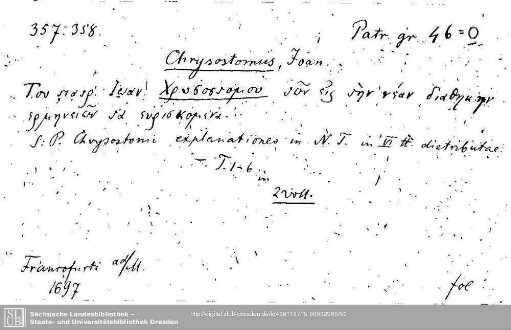 357.358.
Patr. gr. 46=0
Chrysostomus, Joan.
Του Ιωαν. Χρυσοστομου των εις την νεαν διαθηκην
ερμηνειων τα ευρισκομενα.
S. P. Chrysostomi explanationes in N. T. in VI distributae.
T. 1-6 in
2 voll.
Francofurti ad/M.
1697
fol
Sächsische Landesbibliothek –
Staats- und Universitätsbibliothek Dresden